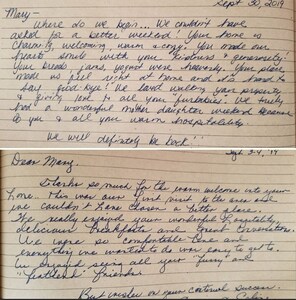 Sept 30, 2019
Mary-
Where do we begin... We couldn't have
asked for a better weekend! Your home is
charming, welcoming, warm & cozy. You made our
hearts smile with your kindness & generosity.
Your breads and were heavenly. Your place
made us feel right at home and it's hard to
say good-bye! We loved walking your property
& giving love to all your "furbabies". We truly
had a wonderful mother daughter weekend because
of you & all your warm hospitality.
We will definitely be back!
Sept 24, '19
Dear Mary,
Thanks so much for the warm welcome into your
home. This was our first visit to the area and
we couldn't have chosen a better place.
We really enjoyed your wonderful hospitality,
delicious breakfasts and great conversation.
We were so comfortable here and
everything we wanted to do was easy to get to.
We enjoyed seeing all your "furry" and
"feathered" friends.
Best wishes on your continued success.